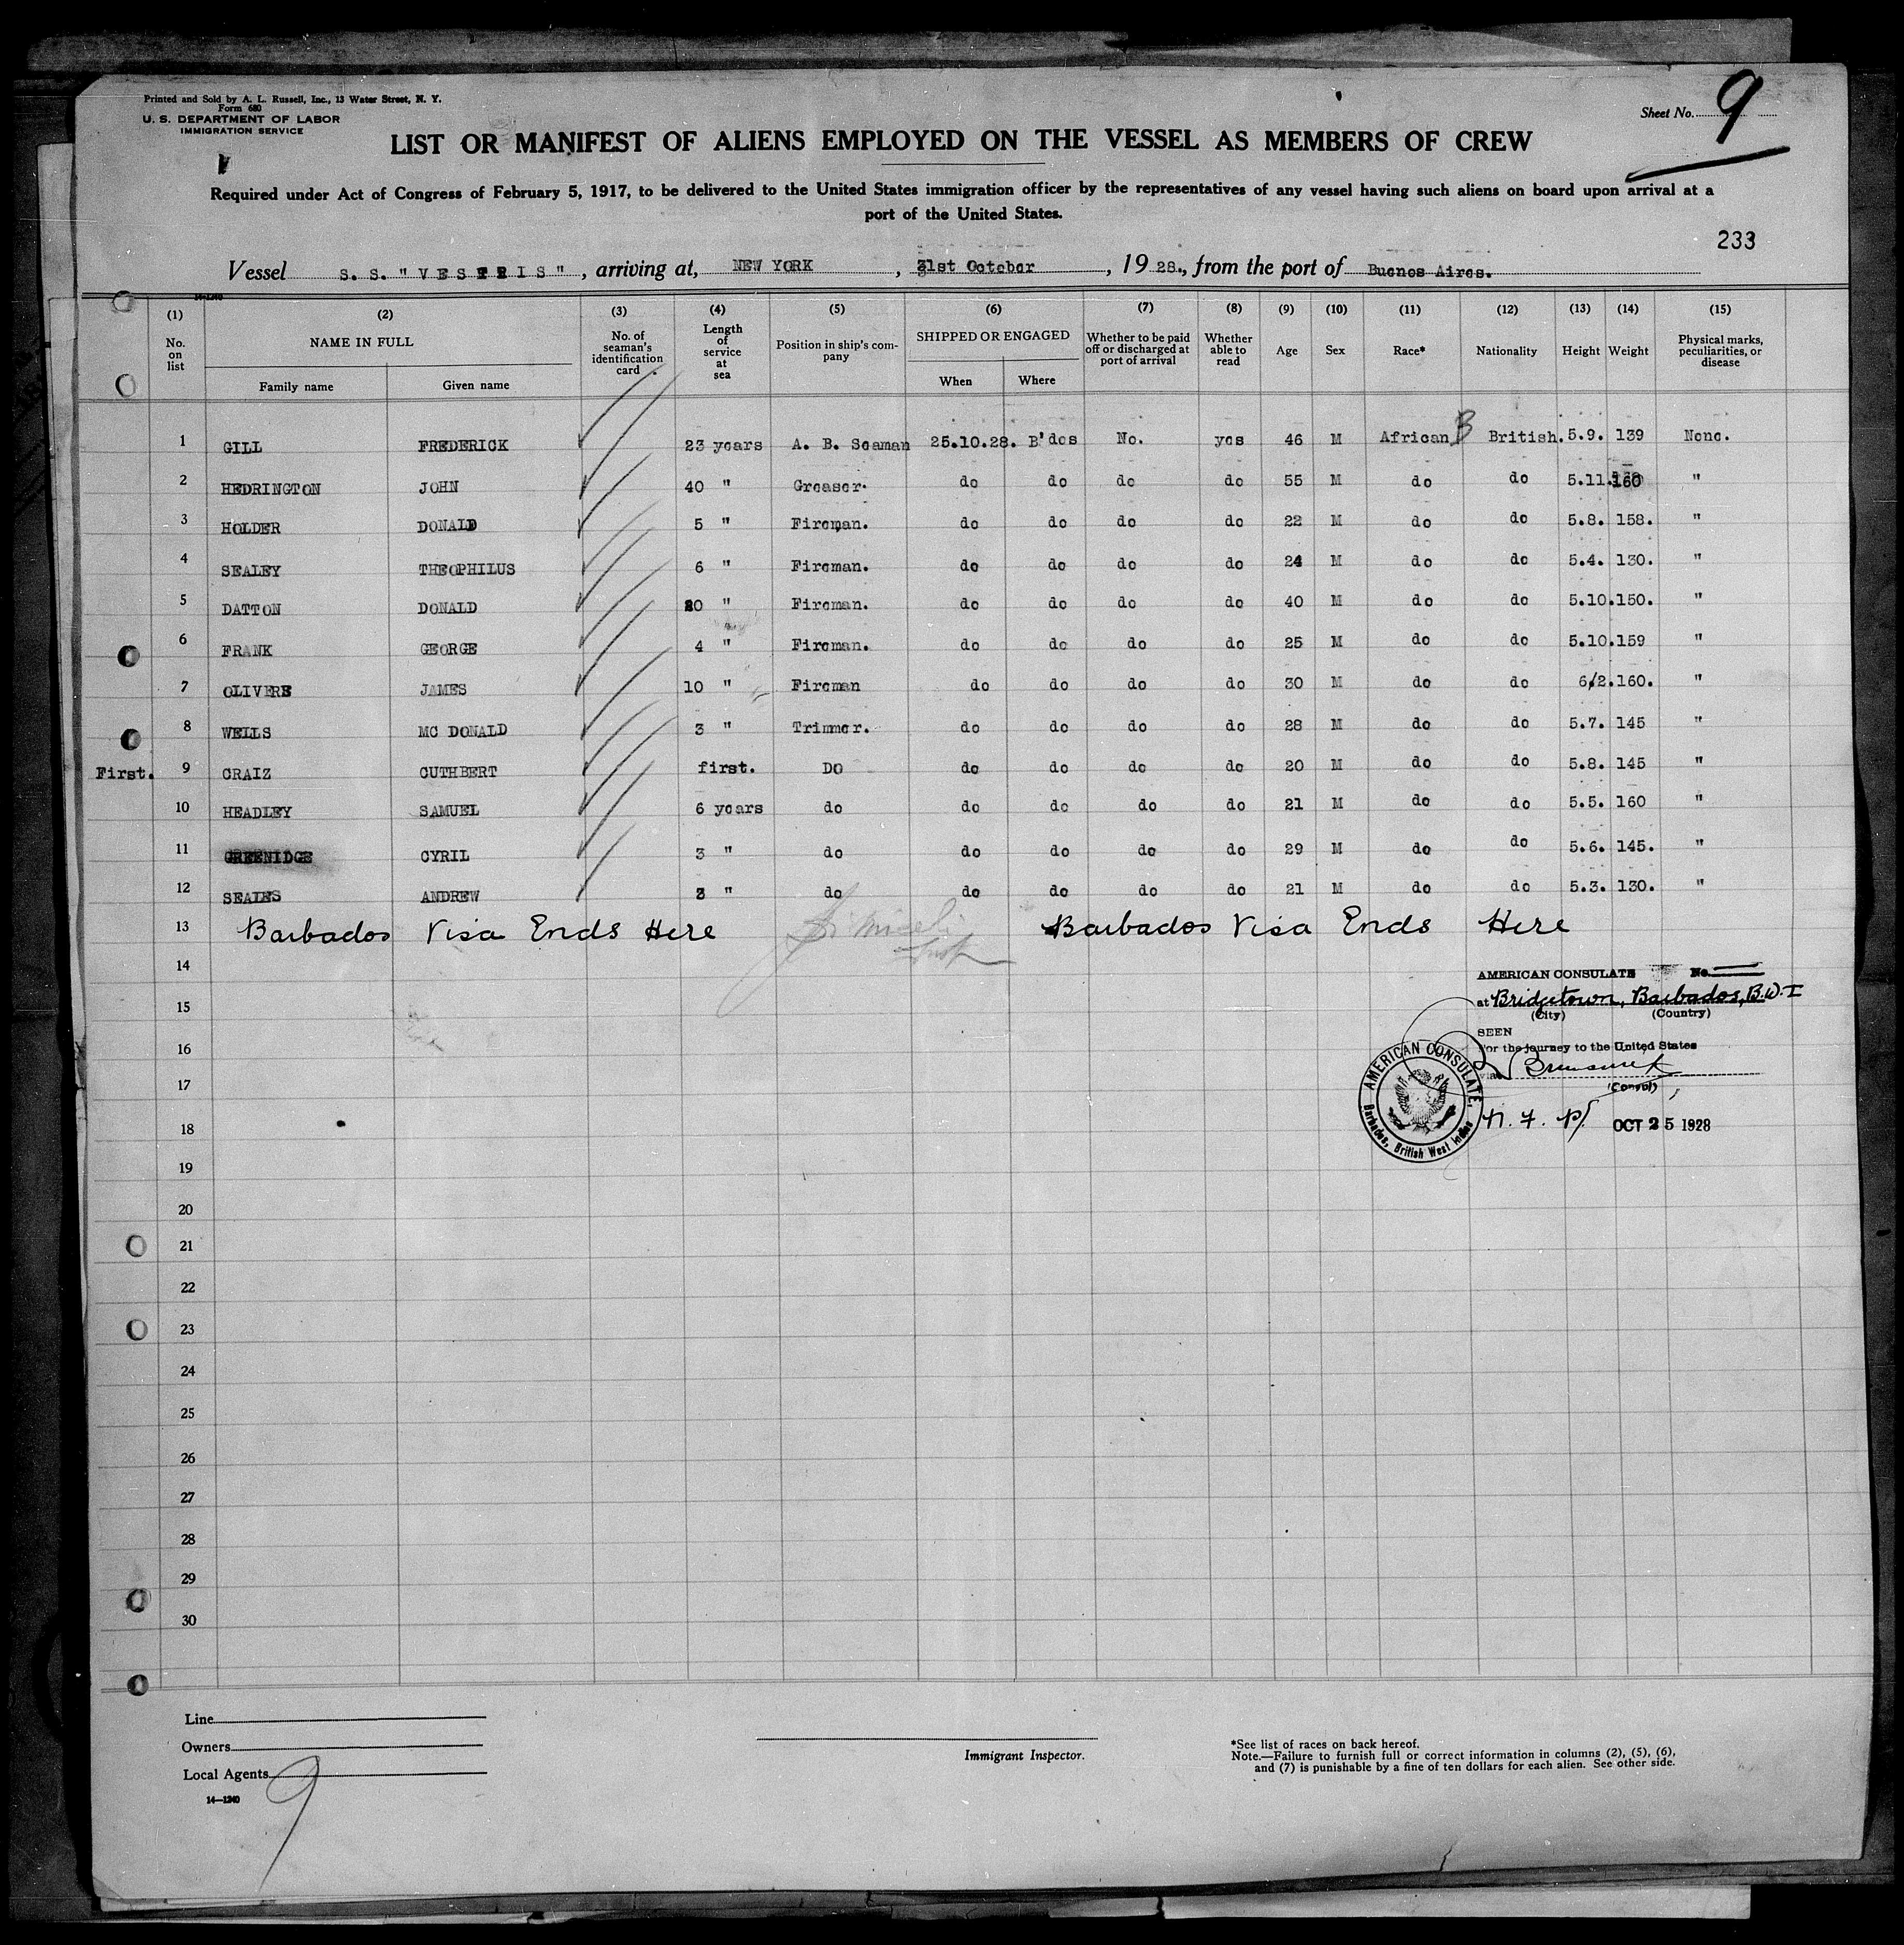 Printed and Sold by A. L. Russell, Inc., 13 Water Street, N. Y.
Form 680
U. S. DEPARTMENT OF LABOR
IMMIGRATION SERVICE
Sheet No. 9
LIST OR MANIFEST OF ALIENS EMPLOYED ON THE VESSEL AS MEMBERS OF CREW
Required under Act of Congress of February 5, 1917, to be delivered to the United States immigration officer by the representatives of any vessel having such aliens on board upon arrival at a
port of the United States.
233
Vessel S. S. "VESTRIS", arriving at, NEW YORK, 31st October, 1928., from the port of Buenos Aires.
14-1240
(1) (2) (3) (4) (5) (6) (7) (8) (9) (10) (11) (12) (13) (14) (15)
No. on list NAME IN FULL Family name Given name No. of seaman's identification card Length of service at sea Position in ship's company SHIPPED OR ENGAGED When Where Whether to be paid off or discharged at port of arrival Whether able to read Age Sex Race* Nationality Height Weight Physical marks, peculiarities, or disease
1 GILL FREDERICK 23 years A. B. Seaman 25.10.28. B'dos No. yes 46 M African B British. 5.9. 139 None.
2 HEDRINGTON JOHN 40 " Greaser. do do do do 55 M do do 5.11. 160 "
3 HOLDER DONALD 5 " Fireman. do do do do 22 M do do 5.8. 158. "
4 SEALEY THEOPHILUS 6 " Fireman. do do do do 24 M do do 5.4. 130. "
5 DATTON DONALD 20 " Fireman. do do do do 40 M do do 5.10. 150. "
6 FRANK GEORGE 4 " Fireman. do do do do 25 M do do 5.10. 159 "
7 OLIVERS JAMES 10 " Fireman do do do do 30 M do do 6/2. 160. "
8 WELLS MC DONALD 3 " Trimmer. do do do do 28 M do do 5.7. 145 "
First. 9 CRAIZ CUTHBERT first. DO do do do do 20 M do do 5.8. 145 "
10 HEADLEY SAMUEL 6 years do do do do do 21 M do do 5.5. 160 "
11 GREENIDGE CYRIL 3 " do do do do do 29 M do do 5.6. 145. "
12 SEALES ANDREW 3 " do do do do do 21 M do do 5.3. 130. "
13 Barbados Visa Ends Here Barbados Visa Ends Here
14
AMERICAN CONSULATE No.
15
at Bridgetown, Barbados, B.W.I
(City) (Country)
SEEN
16
For the journey to the United States
via
17
(Consul)
AMERICAN CONSULATE, Barbados, British West Indies
18
OCT 25 1928
19
20
21
22
23
24
25
26
27
28
29
30
Line
Owners
Local Agents
14—1240
9
Immigrant Inspector.
*See list of races on back hereof.
Note.—Failure to furnish full or correct information in columns (2), (5), (6),
and (7) is punishable by a fine of ten dollars for each alien. See other side.